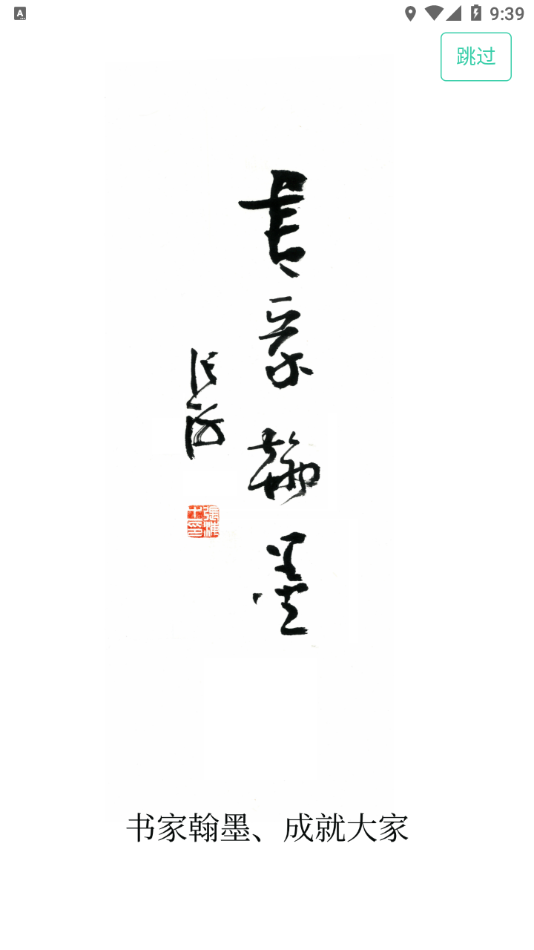 9:39
跳过
書家翰墨
书家翰墨、成就大家